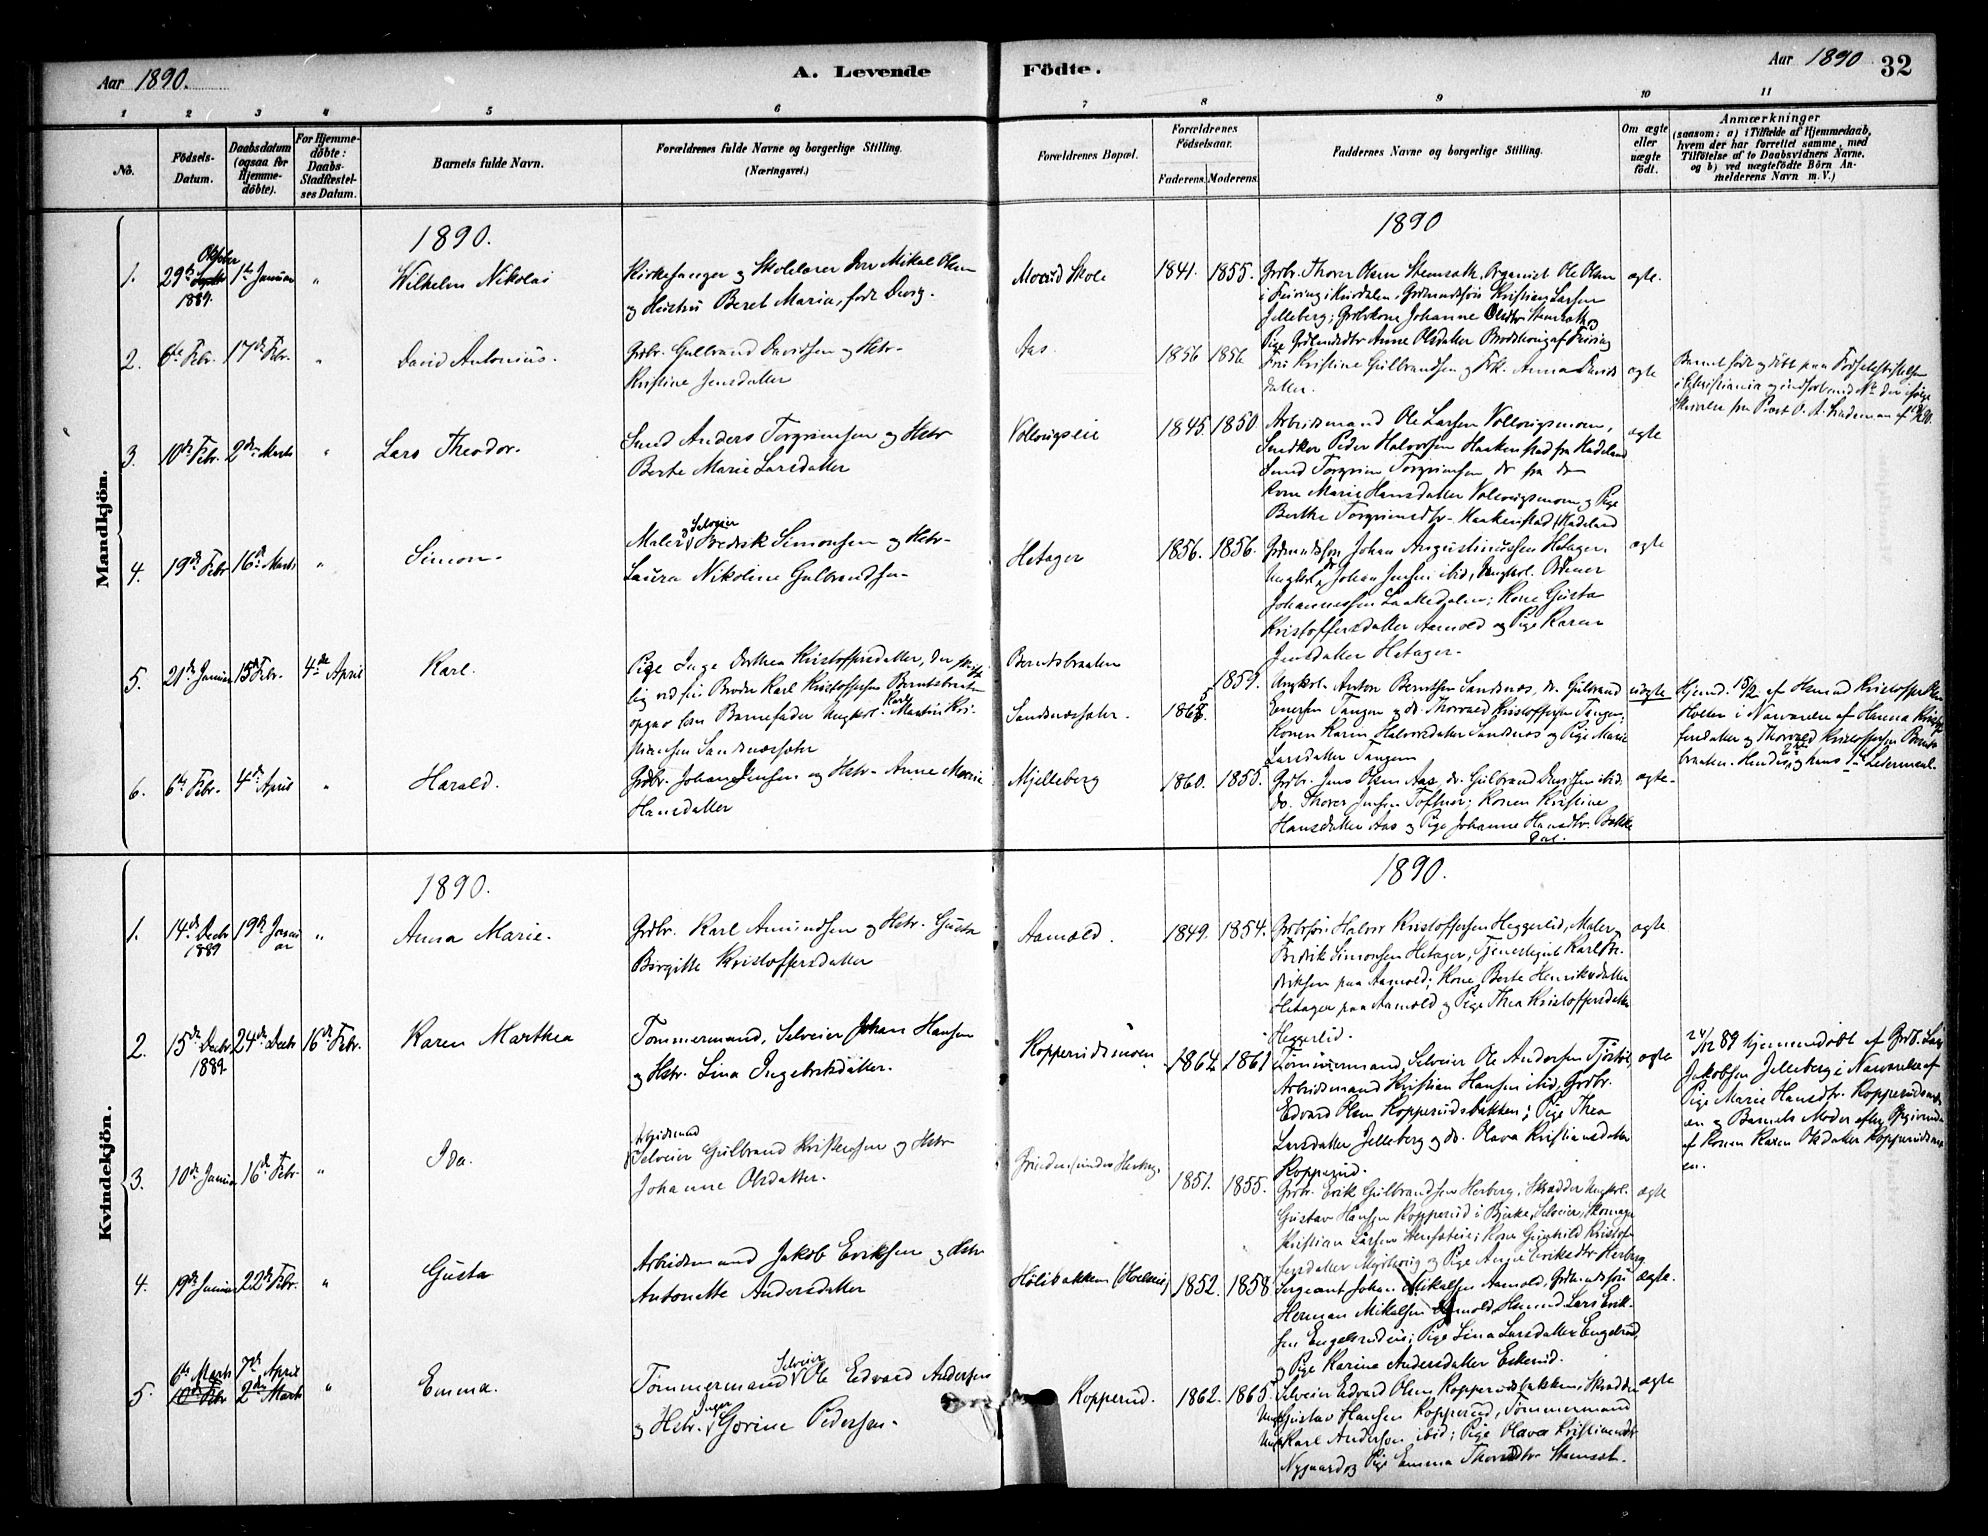 Aar 1890.
A. Levende Födte.
Aar 1890
32
1 2 3 4 5 6 7 8 9 10 11
No.
Födsels-Datum.
Daabsdatum (ogsaa for Hjemme-döbte).
For Hjemme-döbte: Daabs-Stadfæstel-ses Datum.
Barnets fulde Navn.
Forældrenes fulde Navne og borgerlige Stilling. (Næringsvei.)
Forældrenes Bopæl.
Forældrenes Födselsaar.
Faderens. Moderens.
Faddernes Navne og borgerlige Stilling.
Om ægte eller uægte födt.
Anmærkninger
(saasom: a) i Tilfælde af Hjemmedaab, hvem der har forrettet samme, med Tilföielse af to Daabsvidners Navne, og b) ved uægtefödte Börn An-melderens Navn m. V.)
Mandkjön.
1890.
1890
1. 29de Oktober 1889. 1ste Januar " Wilhelm Nikolai
Kirkesanger og Skolelærer Ole Mikal Olsen
og Hustru Beret Maria, født
Morud Skole 1841. 1855.
Grdbr. Thorer Olsen Stensrath, Organist Ole Olsen
i Feiring, Grdmandssøn Kristian Larsen
Jelleberg; Grdbrkone Johanne Olsdtr Stensrath
Pige Anne Olsdatter
ægte.
2. 6te Febr. 17de Febr. " David Antonius.
Grdbr. Gulbrand Davidsen og Hstr.
Kristine Jensdatter
Aas 1856 1856
Fru Kristine Gulbrandsen og Frk. Anna Davids
datter.
ægte
Barnet født og døbt paa Fødselsstiftelsen
i Kristiania og indført under No
Skrivelse fra Præst
3. 10de Febr. 2den Marts " Lars Theodor.
Smed Anders Torgrimsen og Hstr
Berte Marie Larsdatter
Vollaugseie 1845. 1850.
Arbeidsmand Ole Larsen
Snedker Peder Halvorsen Haakenstad fra Hadeland
Smed Torgrim Torgrimsen, do fra do
Kone Marie Hansdatter og Pige
Berthe Torgrimsdtr. Haakenstad, Hadeland
ægte
4. 19de Febr 16de Marts " Simon.
Maler og Selveier Fredrik Simonsen og Hstr.
Laura Nikoline Gulbrandsen.
Hetager 1856. 1856.
Grdmandssøn Johan Augustinussen Hetager.
Ungkrl. Johan Jensen ibid, Ungkrl.
Johannessen; Kone Gusta
Kristoffersdatter Aamold og Pige Karen
Jensdatter Hetager.
ægte
5. 21de Januar 15de Febr. 4de April Karl.
Pige Inge Dorthea Kristoffersdatter, der
lig ved sin Broder Karl Kristoffersen Berntsbraaten
opgav som Barnefader Ungkrl. Karl Martin Kri-
stiansen Sandnæssæter
Berntsbraaten
Sandnæssæter. 1865. 1851.
Ungkrl. Anton Berntsen Sandnæs, do. Gulbrand
Enersen Tangen og do. Thorvald Kristoffersen Tangen;
Konen Karen Halvorsdatter Sandnæs og Pige Marie
Larsdatter Tangen
uægte
Hjemd. 15/2 af
i Nærværelse af Hanna Kristof-
fersdatter og Thorvald Kristoffersen Bernts-
braaten. Hendes 2det og hans 1ste Leiermaal.
6. 6te Febr. 4de April " Harald.
Grdbr. Johan Jensen og Hstr. Anne Marie
Hansdatter
Mjelleberg 1860. 1850.
Grdbr. Jens Olsen Aas, do. Gulbrand Davidsen ibid.
do. Thorer Jensen Toftner; Konen Kristine
Hansdatter Aas og Pige Johanne Hansdtr. Bakke
dal.
ægte.
Kvindekjön.
1890.
1890.
1. 14de Decbr 1889 19de Januar " Anna Marie.
Grdbr. Karl Amundsen og Hstr. Gusta
Birgitte Kristoffersdatter
Aamold. 1849. 1854.
Grdbrsøn Halvor Kristoffersen Heggerlid, Maler
Fredrik Simonsen Hetager, Tjenestegut Karl Fre-
driksen paa Aamold; Kone Berte Henriksdatter
Hetager paa Aamold og Pige Thea Kristoffersdatter
Heggerlid.
ægte
2. 15de Decbr 1889 24de Decbr 16de Febr. Karen Marthea
Tømmermand, Selveier Johan Hansen
og Hstr. Lina Ingebretsdatter.
Kopperudsmoen 1864. 1861
Tømmermand, Selveier Ole Andersen
Arbeidsmand Kristian Hansen ibid, Grdbr.
Edvard Olsen Kopperudsbakken; Pige Thea
Larsdatter Jelleberg og do. Olava Kristiansdatter
Kopperud.
ægte
24/12 89 hjemmedøbt af Grdb. Lars
Jakobsen Jelleberg i Nærværelse af
Pige Marie Hansdtr. Kopperudsmo-
en og Barnets Moder efter Opgivende
af Konen Karen Olsdatter Kopperudsmo-
en.
3. 10de Januar 16de Febr " Ida.
Arbeidsmand
Selveier Gulbrand Kristensen og Hstr
Johanne Olsdatter.
under Herberg. 1851. 1855.
Grdbr. Erik Gulbrandsen Herberg, Skrædder Ungkrl.
Gustav Hansen Kopperud i Bjerke, Selveier, Skomager
Kristian Larsen; Kone Gunhild Kristof-
fersdatter og Pige Anne Eriksdtr Herberg
ægte
4. 19de Januar 22de Febr. " Gusta
Arbeidsmand Jakob Eriksen og Hstr
Antonette Andersdatter
Holibakken 1852. 1858
Sergeant Johan Mikalsen Aamold, Grdmandssøn
Herman Mikalsen Aamold, Lars Erik-
sen; Pige Lina Larsdatter Engelsrud
og Pige Karine Andersdatter Eskerud.
ægte.
5. 6te Marts 7de April " Emma.
10de Febr 2den Marts
Tømmermand Selveier Ole Edvard Andersen
og Hstr. Inger Gorine Pedersen.
Kopperud. 1862. 1865
Selveier Edvard Olsen Kopperudsbakken, Skrædder
Ungk Gustav Hansen Kopperud, Tømmermand
Ungk Karl Andersen ibid; Pige Olava Kristiansdtr
Nygaard og Pige Emma Thorersdtr Stensrath.
ægte